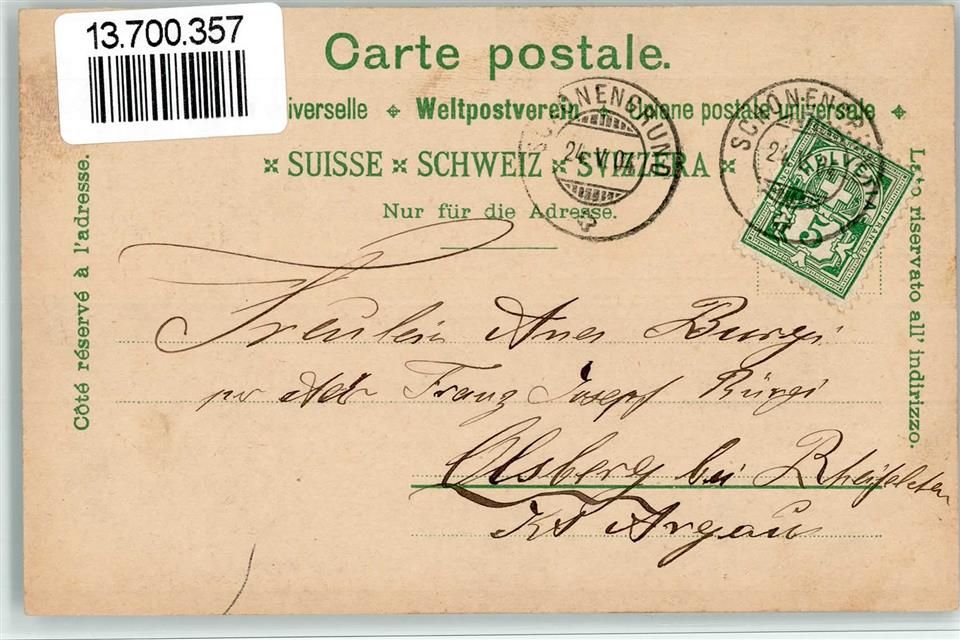 13.700.357
Carte postale.
iverselle ✣ Weltpostverein ✣ Unione postale universale ✣
SUISSE × SCHWEIZ × SVIZZERA ×
Nur für die Adresse.
Côté réservé à l'adresse.
Lato riservato all' indirizzo.
SCHÖNENGRUND
24.V.04
SCHÖNENGRU
24
HELVETIA
5
FRANCO
Freulein Burgi
Adr Franz Josepf Bürgi
Olsberg bei Rheifelden
Kt Argau